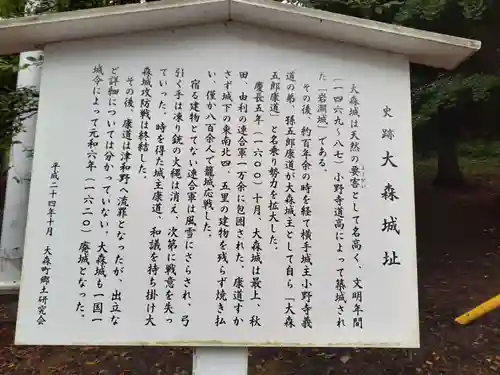 史跡 大森城址
大森城は天然の要害として名高く、文明年間
(一四六九~八七)小野寺道高によって築城され
た「岩淵城」である。
その後、約百年余の時を経て横手城主小野寺義
道の弟、孫五郎康道が大森城主として自ら「大森
五郎康道」と名乗り勢力を拡大した。
慶長五年(一六〇〇)十月、大森城は最上、秋
田、由利の連合軍一万余に包囲された。康道すか
さず城下の東南北四、五里の建物を残らず焼き払
い、僅か八百余人で籠城応戦した。
宿る建物とてない連合軍は風雪にさらされ、弓
引く手は凍り銃の火縄は消え、次第に戦意を失っ
ていった。時を得た城主康道、和議を持ち掛け大
森城攻防戦は終結した。
その後、康道は津和野へ流罪となったが、出立な
ど詳細については分かっていない。大森城も一国一
城令によって元和六年(一六二〇)廃城となった。
平成二十四年十月 大森町郷土研究会